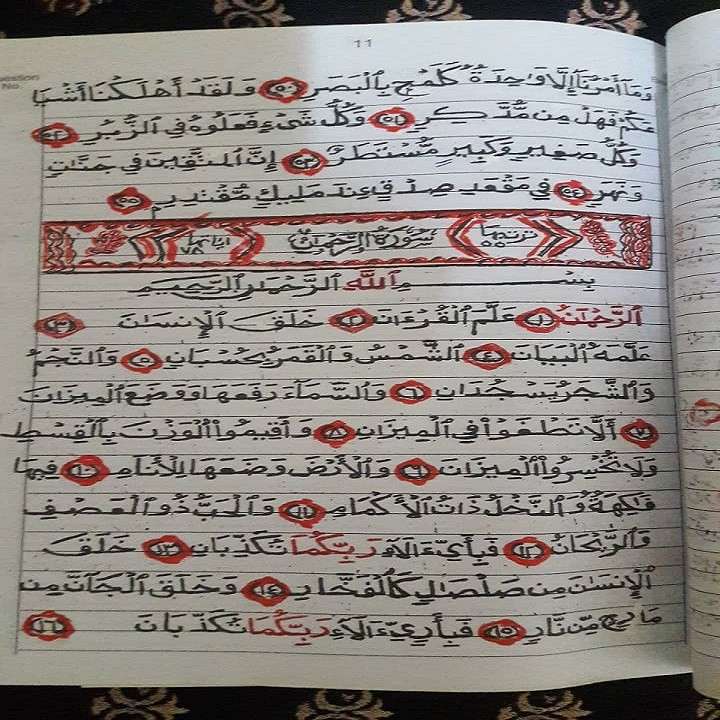 11
estion
No.
وَمَا أَمْرُنَا إِلَّا وَاحِدَةٌ كَلَمْحٍ بِالْبَصَرِ ٥٠ وَلَقَدْ أَهْلَكْنَا أَشْيَا
عَكُمْ فَهَلْ مِن مُّدَّكِرٍ ٥١ وَكُلُّ شَيْءٍ فَعَلُوهُ فِي الزُّبُرِ ٥٢
وَكُلُّ صَغِيرٍ وَكَبِيرٍ مُّسْتَطَرٌ ٥٣ إِنَّ الْمُتَّقِينَ فِي جَنَّاتٍ
وَنَهَرٍ ٥٤ فِي مَقْعَدِ صِدْقٍ عِندَ مَلِيكٍ مُّقْتَدِرٍ ٥٥
ترتيبها ٥٥ سُورَةُ الرَّحْمَٰن آياتها ٧٨
بِسْمِ اللَّهِ الرَّحْمَٰنِ الرَّحِيمِ
الرَّحْمَٰنُ ١ عَلَّمَ الْقُرْءَانَ ٢ خَلَقَ الْإِنسَٰنَ ٣
عَلَّمَهُ الْبَيَانَ ٤ الشَّمْسُ وَالْقَمَرُ بِحُسْبَانٍ ٥ وَالنَّجْمُ
وَالشَّجَرُ يَسْجُدَانِ ٦ وَالسَّمَاءَ رَفَعَهَا وَوَضَعَ الْمِيزَانَ
٧ أَلَّا تَطْغَوْا فِي الْمِيزَانِ ٨ وَأَقِيمُوا الْوَزْنَ بِالْقِسْطِ
وَلَا تُخْسِرُوا الْمِيزَانَ ٩ وَالْأَرْضَ وَضَعَهَا لِلْأَنَامِ ١٠ فِيهَا
فَٰكِهَةٌ وَالنَّخْلُ ذَاتُ الْأَكْمَامِ ١١ وَالْحَبُّ ذُو الْعَصْفِ
وَالرَّيْحَانُ ١٢ فَبِأَيِّ ءَالَاءِ رَبِّكُمَا تُكَذِّبَانِ ١٣ خَلَقَ
الْإِنسَٰنَ مِن صَلْصَالٍ كَالْفَخَّارِ ١٤ وَخَلَقَ الْجَانَّ مِن
مَّارِجٍ مِّن نَّارٍ ١٥ فَبِأَيِّ ءَالَاءِ رَبِّكُمَا تُكَذِّبَانِ ١٦